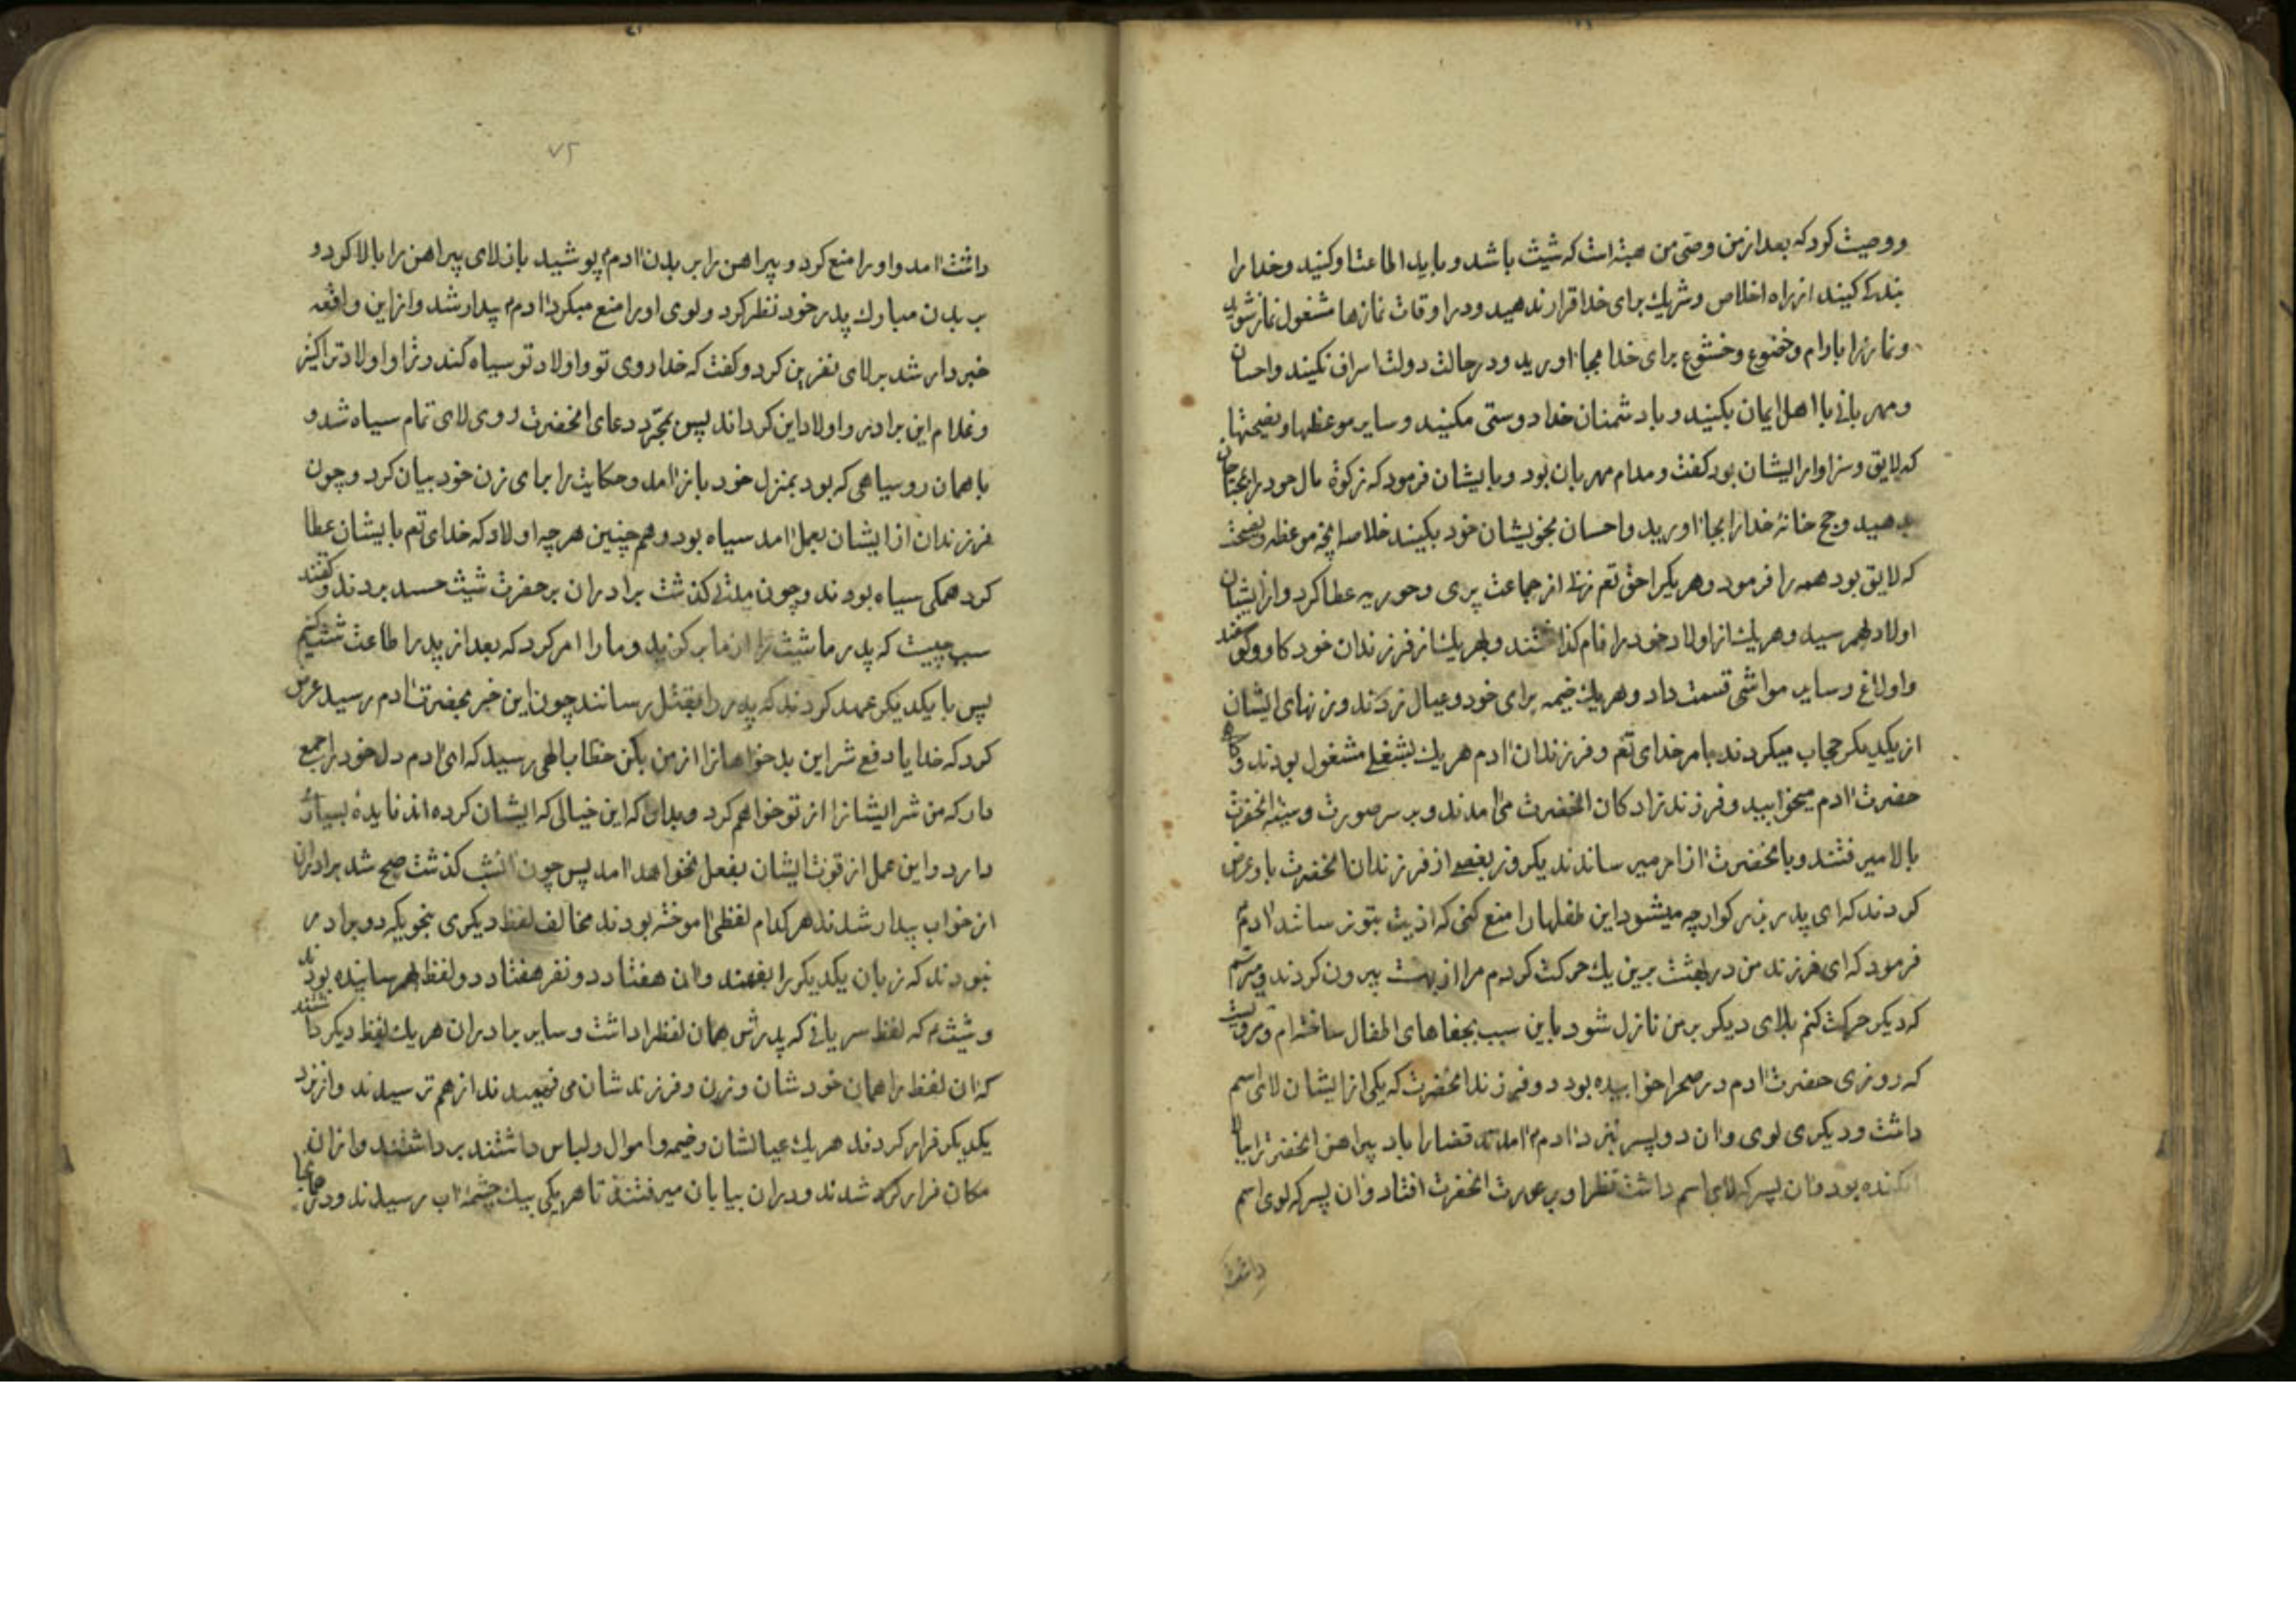 ووصیت کرد که بعد از من وصی من هبة است که شیث باشد و باید اطاعت او کنید و خدا را
بندکی کنید از راه اخلاص و شریک برای خدا قرار ندهید و در اوقات نمازها مشغول نماز شوید
و نماز را با رام و خضوع و خشوع برای خدا بجا اورید و در حالت دولت اسراف نکنید و احسان
و مهربانی با اهل ایمان بکنید و با دشمنان خدا دوستی مکنید و سایر موعظها و نصیحتها
که لایق و سزاوار ایشان بود کفت و مدام مهربان بود و بایشان فرمود که زکوة مال خود را بمحتاجان
بدهید و حج خانه خدا را بجا اورید و احسان بخویشان خود بکنید خلاصه انچه موعظه و نصیحت
که لایق بود همه را فرمود و هر یکرا حق تعم زنی از جماعت پری و حوریه عطا کرد و از ایشان
اولاد بهمرسید و هر یک از اولاد خود را نام کذاشتند و بهر یک از فرزندان خود کاو و کوسفند
و اولاغ و سایر مواشی قسمت داد و هر یک خیمه برای خود و عیال زدند و زنهای ایشان
از یکدیکر حجاب میکردند بامر خدای تعم و فرزندان ادم هر یک بشغلی مشغول بودند و کاه
حضرت ادم میخوابید و فرزندزادکان انحضرت می امدند و بر سر صورت و سینه انحضرت
بالا میرفتند و بانحضرت ازار میرساندند یکروز بعضی از فرزندان انحضرت باو عرض
کردند که ای پدر بزرکوار چه میشود این طفلها را منع کنی که اذیت بتو نرسانند ادم
فرمود که ای فرزند من در بهشت برین یک حرکت کردم مرا از بهشت بیرون کردند و میترسم
که دیکر حرکت کنم بلای دیکر بر من نازل شود باین سبب بجفاهای اطفال ساخته ام و مرویست
که روزی حضرت ادم در صحرا خوابیده بود دو فرزند انحضرت که یکی از ایشان لای اسم
داشت و دیکری لوی و ان دو پسر نزد ادم امدند قضا را باد پیراهن انحضرت را ببالا
افکنده بود و ان پسر که لای اسم داشت نظر او بر عورت انحضرت افتاد و ان پسر که لوی اسم
داشت
۷۲
داشت امد و او را منع کرد و پیراهن را بر بدن ادم پوشید باز لای پیراهن را بالا کرد و
ببدن مبارک پدر خود نظر کرد و لوی او را منع میکرد ادم بیدار شد و از این واقعه
خبردار شد بر لای نفرین کرد و کفت که خدا روی تو و اولاد تو سیاه کند و ترا و اولاد ترا کنیز
و غلام این برادر و اولاد این کرداند پس بمجرد دعای انحضرت روی لای تمام سیاه شد و
با همان روسیاهی که بود بمنزل خود باز امد و حکایت را برای زن خود بیان کرد و چون
فرزندان از ایشان بعمل امد سیاه بود و همچنین هر چه اولاد که خدای تعم بایشان عطا
کرد همکی سیاه بودند و چون مدتی کذشت برادران بر حضرت شیث حسد بردند و کفتند
سبب چیست که پدر ما شیث را از ما بر کزید و ما را امر کرد که بعد از پدر اطاعت شیث کنیم
پس با یکدیکر عهد کردند که پدر را بقتل رسانند چون این خبر بحضرت ادم رسید عرض
کرد که خدایا دفع شر این بدخواهان را از من بکن خطاب الهی رسید که ای ادم دل خود را جمع
دار که من شر ایشان را از تو خواهم کرد و بدان که این خیالی که ایشان کرده اند فایده بسیار
دارد و این عمل از قوت ایشان بفعل نخواهد امد پس چون انشب کذشت صبح شد برادران
از خواب بیدار شدند هر کدام لفظی اموخته بودند مخالف لفظ دیکری بنحویکه دو برادر
نبودند که زبان یکدیکر را بفهمند و ان هفتاد دو نفر هفتاد دو لفظ بهم رسانیده بودند
و شیث که لفظ سریانی که پدرش همان لفظ را داشت و سایر برادران هر یک لفظ دیکر داشتند
که ان لفظ را همان خودشان و زن و فرزندشان می فهمیدند از هم ترسیدند و از نزد
یکدیکر فرار کردند هر یک عیالشان و خیمه و اموال و لباس داشتند برداشتند و از ان
مکان فرار کرده شدند و در ان بیابان میرفتند تا هر یکی بیک چشمه اب رسیدند و در همانجا